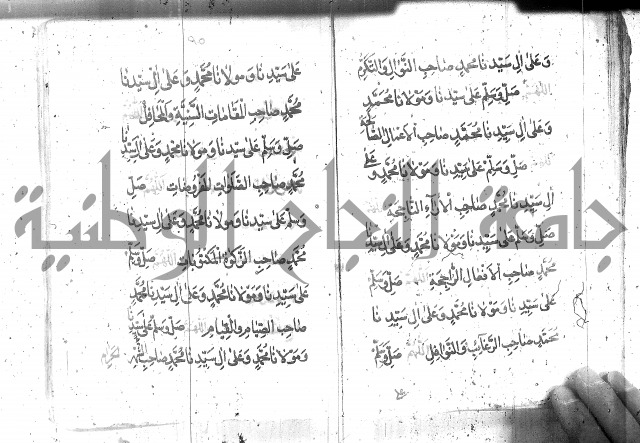 وَعَلىٰ اٰلِ سَيِّدِنَا مُحَمَّدٍ صَاحِبِ النَّوَالِ وَالتَّكَرُّمِ
اللهم صَلِّ وَسَلِّمْ عَلىٰ سَيِّدِنَا وَمَوْلَانَا مُحَمَّدٍ
وَعَلىٰ اٰلِ سَيِّدِنَا مُحَمَّدٍ صَاحِبِ الْاَعْمَالِ
اللهم صَلِّ وَسَلِّمْ عَلىٰ سَيِّدِنَا وَمَوْلَانَا مُحَمَّدٍ وَعَلىٰ
اٰلِ سَيِّدِنَا مُحَمَّدٍ صَاحِبِ الْاٰرَاءِ النَّاجِحَةِ
صَلِّ وَسَلِّمْ عَلىٰ سَيِّدِنَا وَمَوْلَانَا مُحَمَّدٍ وَعَلىٰ اٰلِ سَيِّدِنَا
مُحَمَّدٍ صَاحِبِ الْاَفْعَالِ الرَّاجِحَةِ اللهم صَلِّ وَسَلِّمْ
عَلىٰ سَيِّدِنَا وَمَوْلَانَا مُحَمَّدٍ وَعَلىٰ اٰلِ سَيِّدِنَا
مُحَمَّدٍ صَاحِبِ الرَّغَائِبِ وَالنَّوَافِلِ اللهم صَلِّ وَسَلِّمْ
عَلىٰ سَيِّدِنَا وَمَوْلَانَا مُحَمَّدٍ وَعَلىٰ اٰلِ سَيِّدِنَا
مُحَمَّدٍ صَاحِبِ الْمَقَامَاتِ السَّنِيَّةِ وَالْمَحَافِلِ
صَلِّ وَسَلِّمْ عَلىٰ سَيِّدِنَا وَمَوْلَانَا مُحَمَّدٍ وَعَلىٰ اٰلِ سَيِّدِنَا
مُحَمَّدٍ صَاحِبِ الصَّلَوَاتِ الْمَفْرُوضَاتِ صَلِّ
وَسَلِّمْ عَلىٰ سَيِّدِنَا وَمَوْلَانَا مُحَمَّدٍ وَعَلىٰ اٰلِ سَيِّدِنَا
مُحَمَّدٍ صَاحِبِ الزَّكَوٰةِ الْمَكْتُوبَاتِ اللهم صَلِّ وَسَلِّمْ
عَلىٰ سَيِّدِنَا وَمَوْلَانَا مُحَمَّدٍ وَعَلىٰ اٰلِ سَيِّدِنَا مُحَمَّدٍ
صَاحِبِ الصِّيَامِ وَالْقِيَامِ اللهم صَلِّ وَسَلِّمْ عَلىٰ سَيِّدِنَا
وَمَوْلَانَا مُحَمَّدٍ وَعَلىٰ اٰلِ سَيِّدِنَا مُحَمَّدٍ صَاحِبِ
جامعة النجاح الوطنية